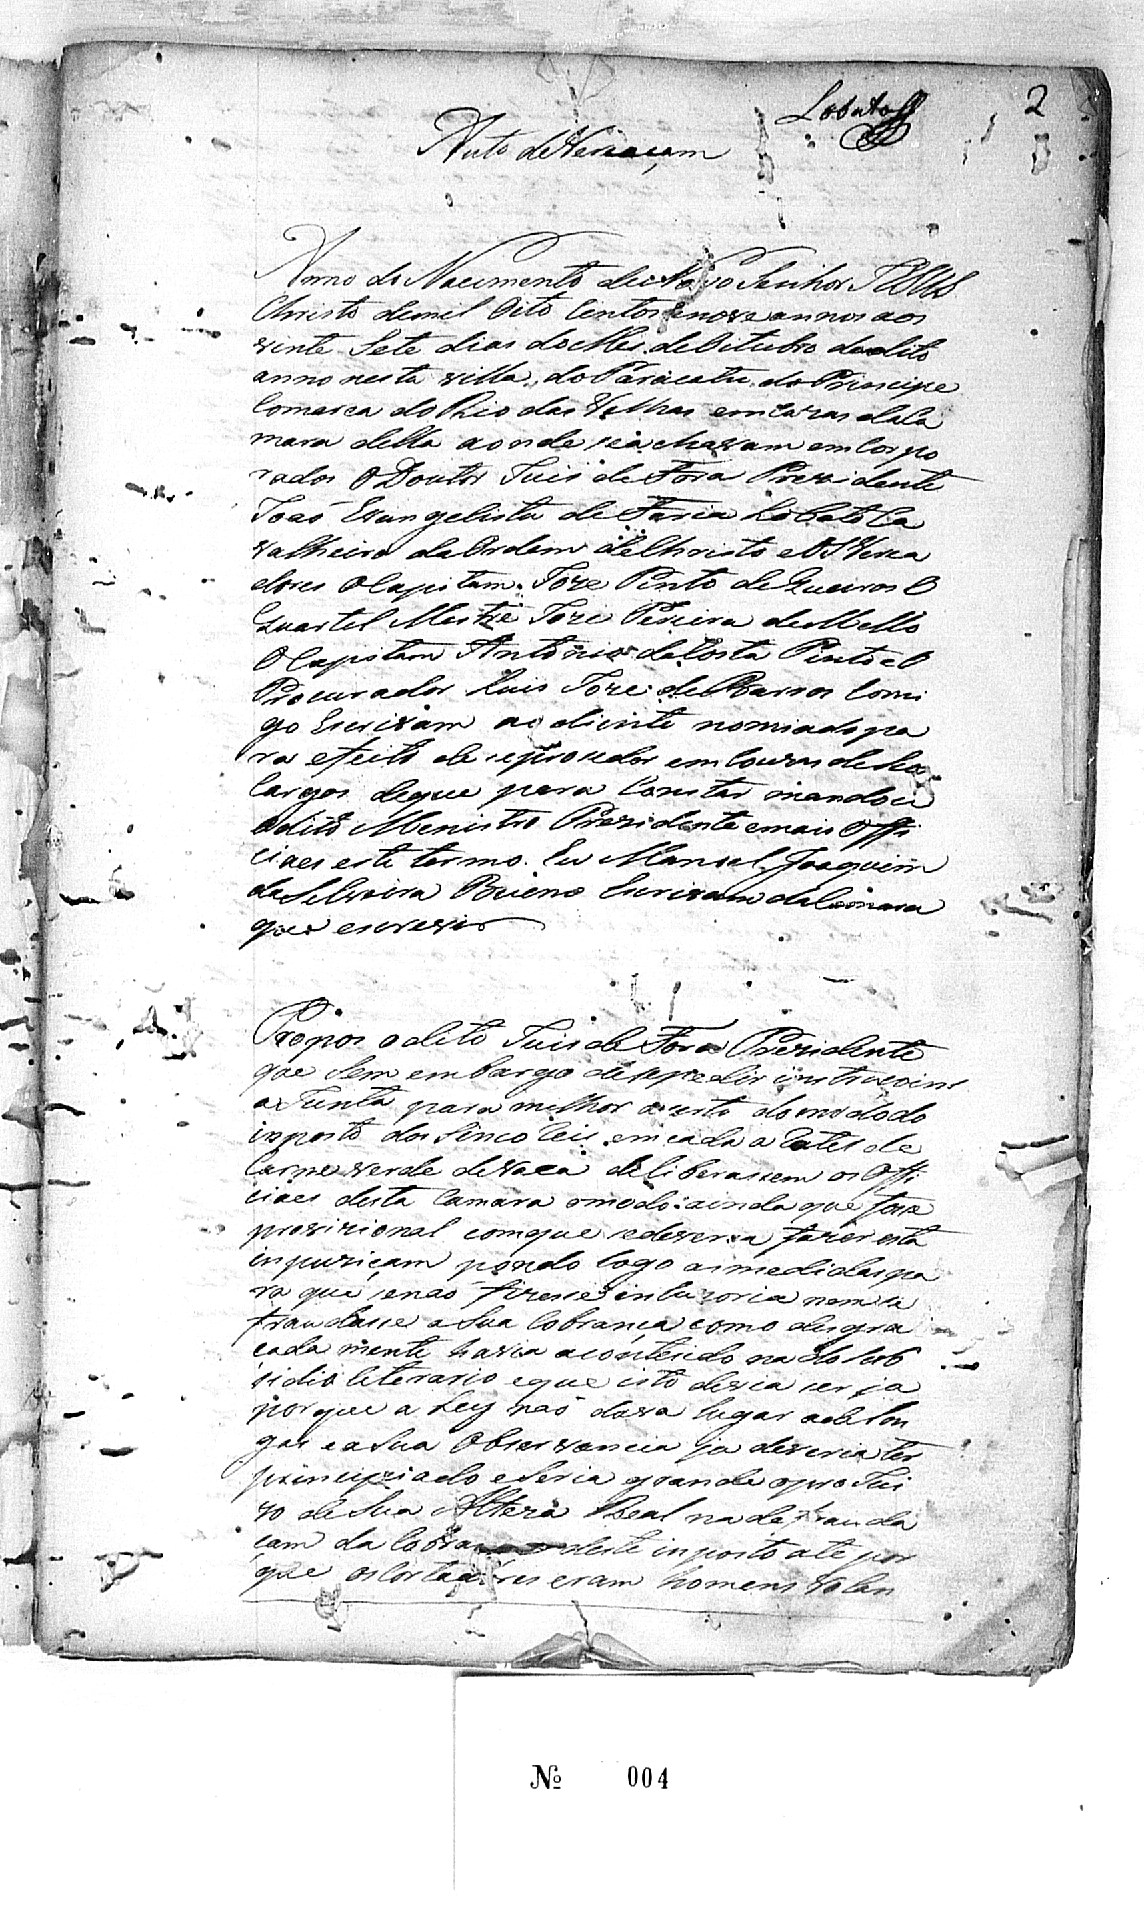 Lobato
2
Auto de Veriaçam
Anno do Nacimento de Noso Senhor JEZUS
Christo de mil Oito Centos e nove annos aos
vinte Sete dias do Mes de Oitubro do dito
anno nesta villa do Paracatu do Principe
Comarca do Rio das Velhas em Cazas da Ca
mara della aonde se achavam em Corpo
rados O Doutor Juis de Fora Prezidente
Joaõ Evangelista de Faria Lobato Ca
valheiro da Ordem de Christo e OS Verea
dores O Capitam Joze Pinto de Queiros O
Quartel Mestre Joze Pereira de Mello
O Capitam Antonio da Costa Pinto e O
Procurador Luis Joze de Barros Comi
go Escrivam ao diente nomiado pa
ra efeito de se prover em Couzas de Se
Cargos de que para Constar mandou
o dito Menistro Prezidente e mais Offi
ciaes este termo. Eu Manoel Joaquim
da Silveira Bueno Escrivam da Camara
que o escrevi
Propos o dito Juis de Fora Prezidente
que Sem embargo de se pedir instrucoins
a Junta para milhor acerto do modo do
inposto dos Sinco reis em cada arratel de
Carne verde de vaca deliberassem os Offi
ciaes desta Camara o modo ainda que fose
provizional com que se deveria fazer esta
inpuziçam pondo logo as medidas pa
ra que se naõ fizesse inluzoria nem se
fraudasse a Sua Cobrança como desgra
cada mente havia acontesido na do Sub
sidio literario e que isto devia ser ja
por que a Ley naõ dava lugar a delon
gas e a Sua Observancia ja deveria ter
principiado e Seria grande o projui
zo de Sua Alteza Real na defrauda
cam da Cobranca deste inposto ate por
que os Cortadores eram homens volan
Nº 004